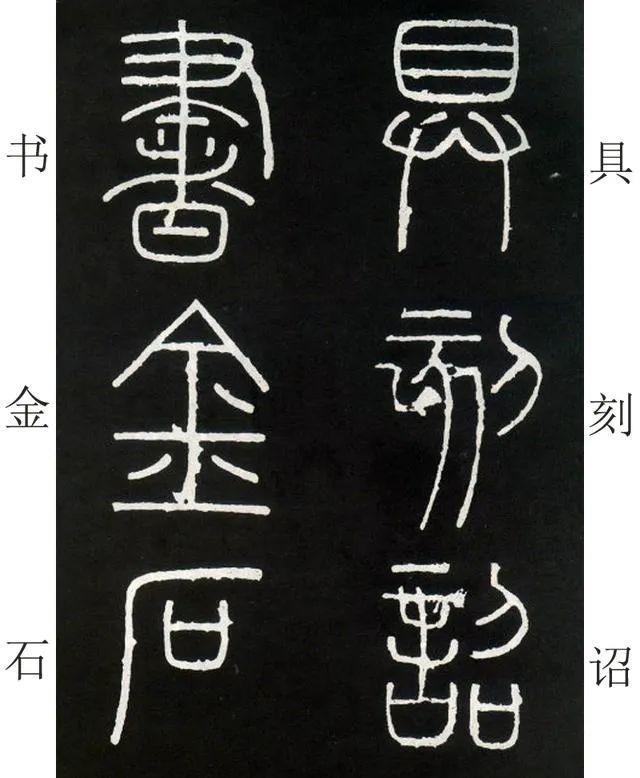 具刻诏
具刻詔
書金石
书金石